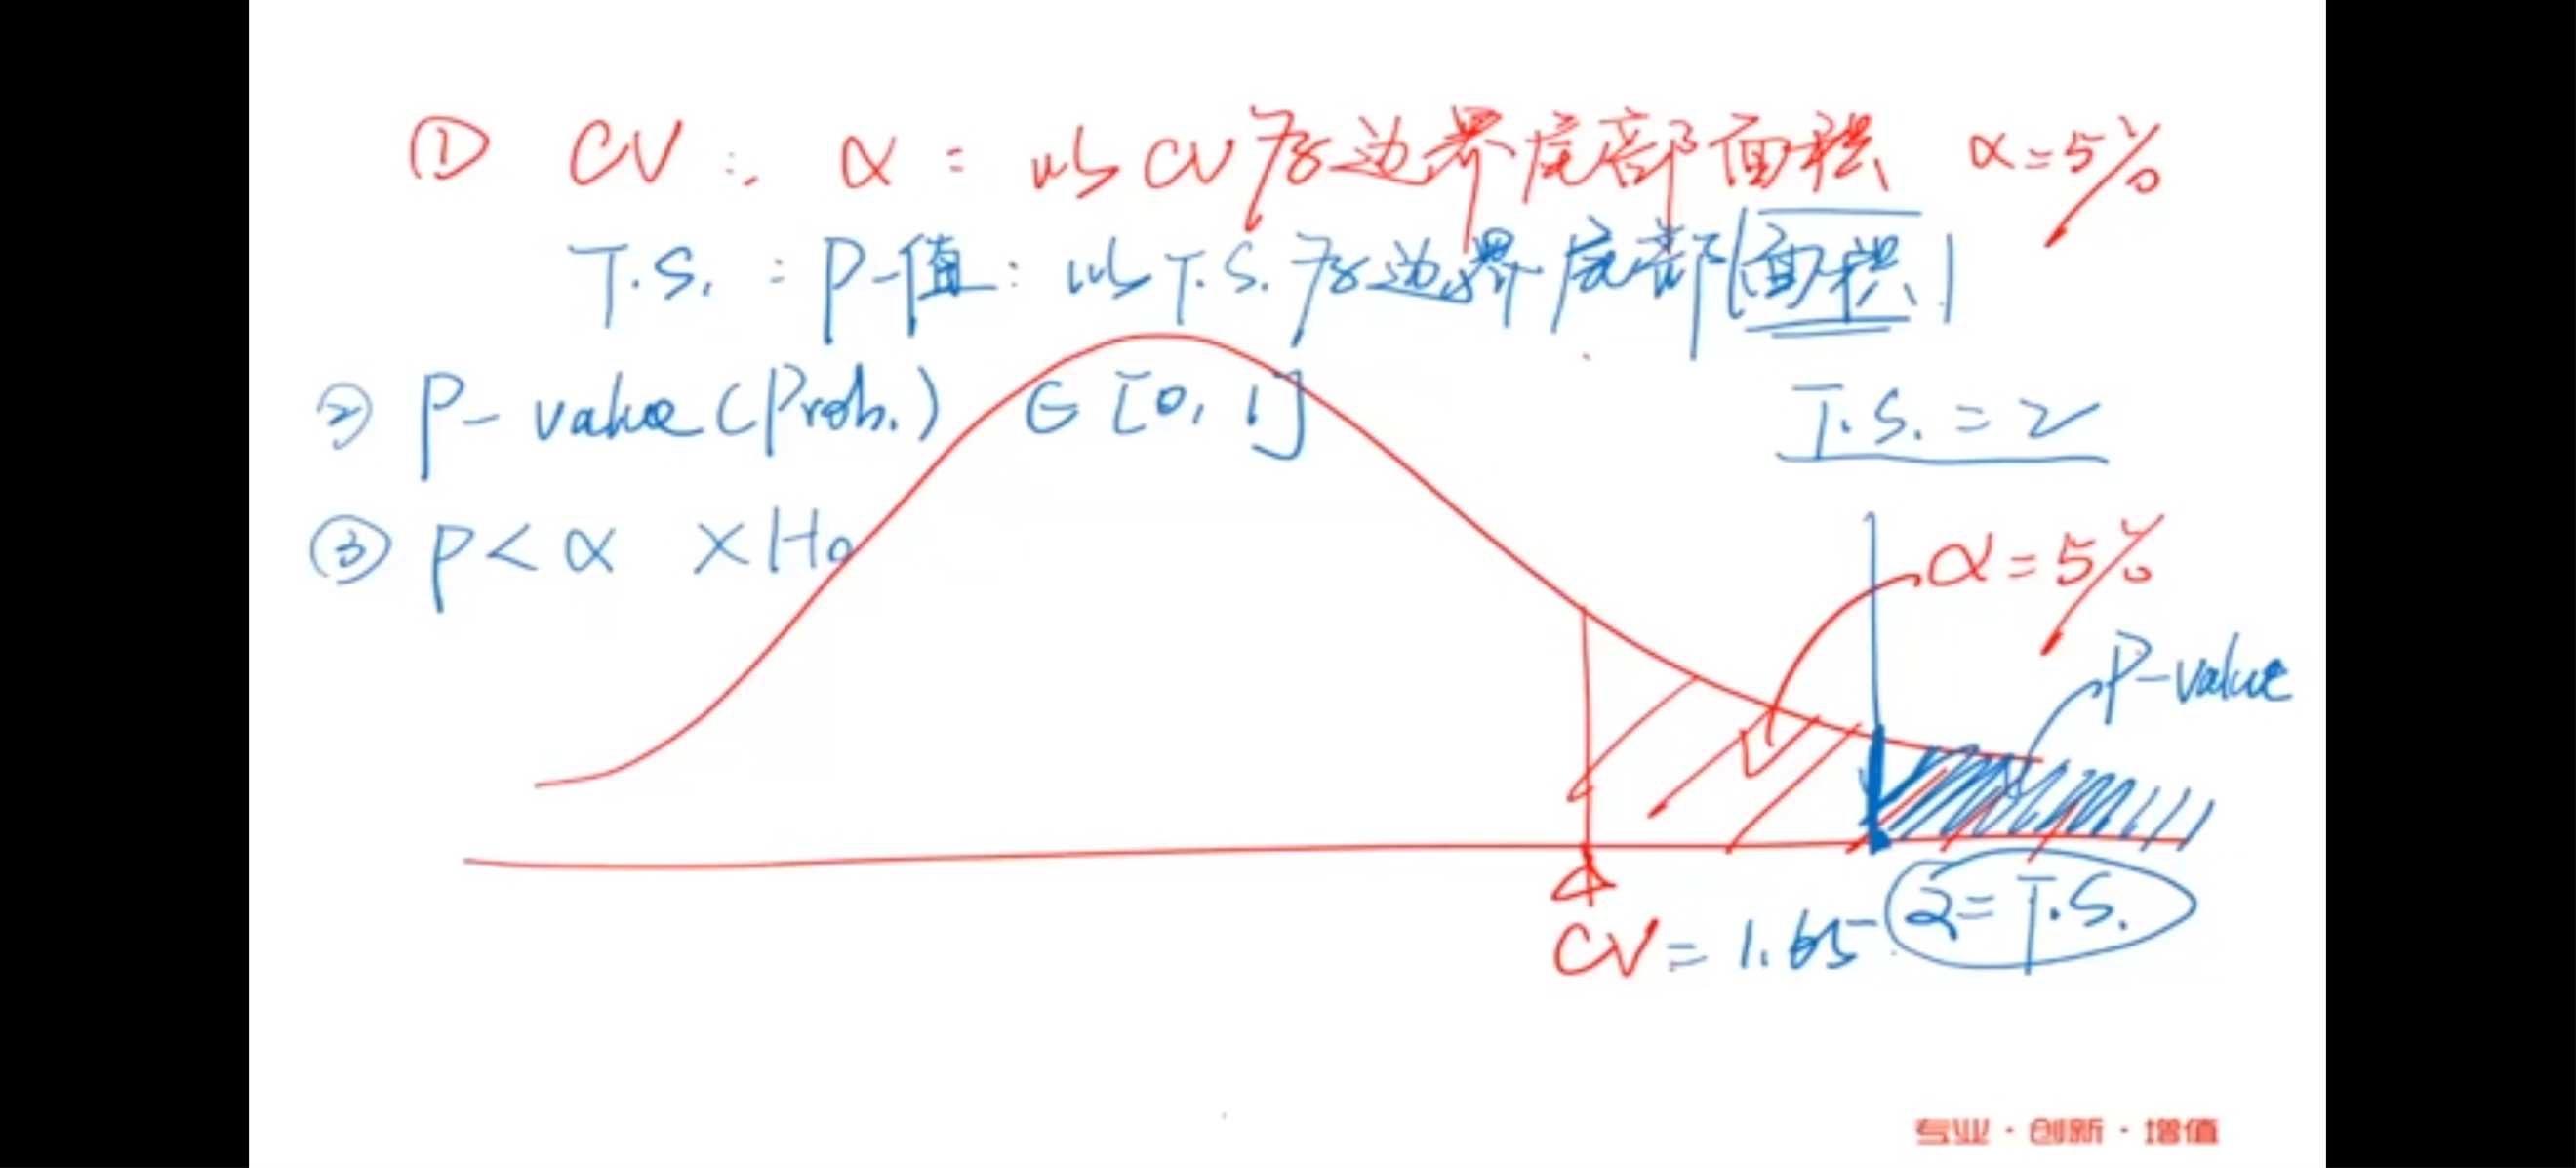 ① CV: α = 以CV为边界尾部面积 α=5%
T.S. : P-值: 以T.S.为边界尾部|面积|
② P-value(Prob.) ∈ [0, 1]
T.S. = 2
③ P<α ×H₀
α=5%
P-value
CV = 1.65
2 = T.S.
专业·创新·增值